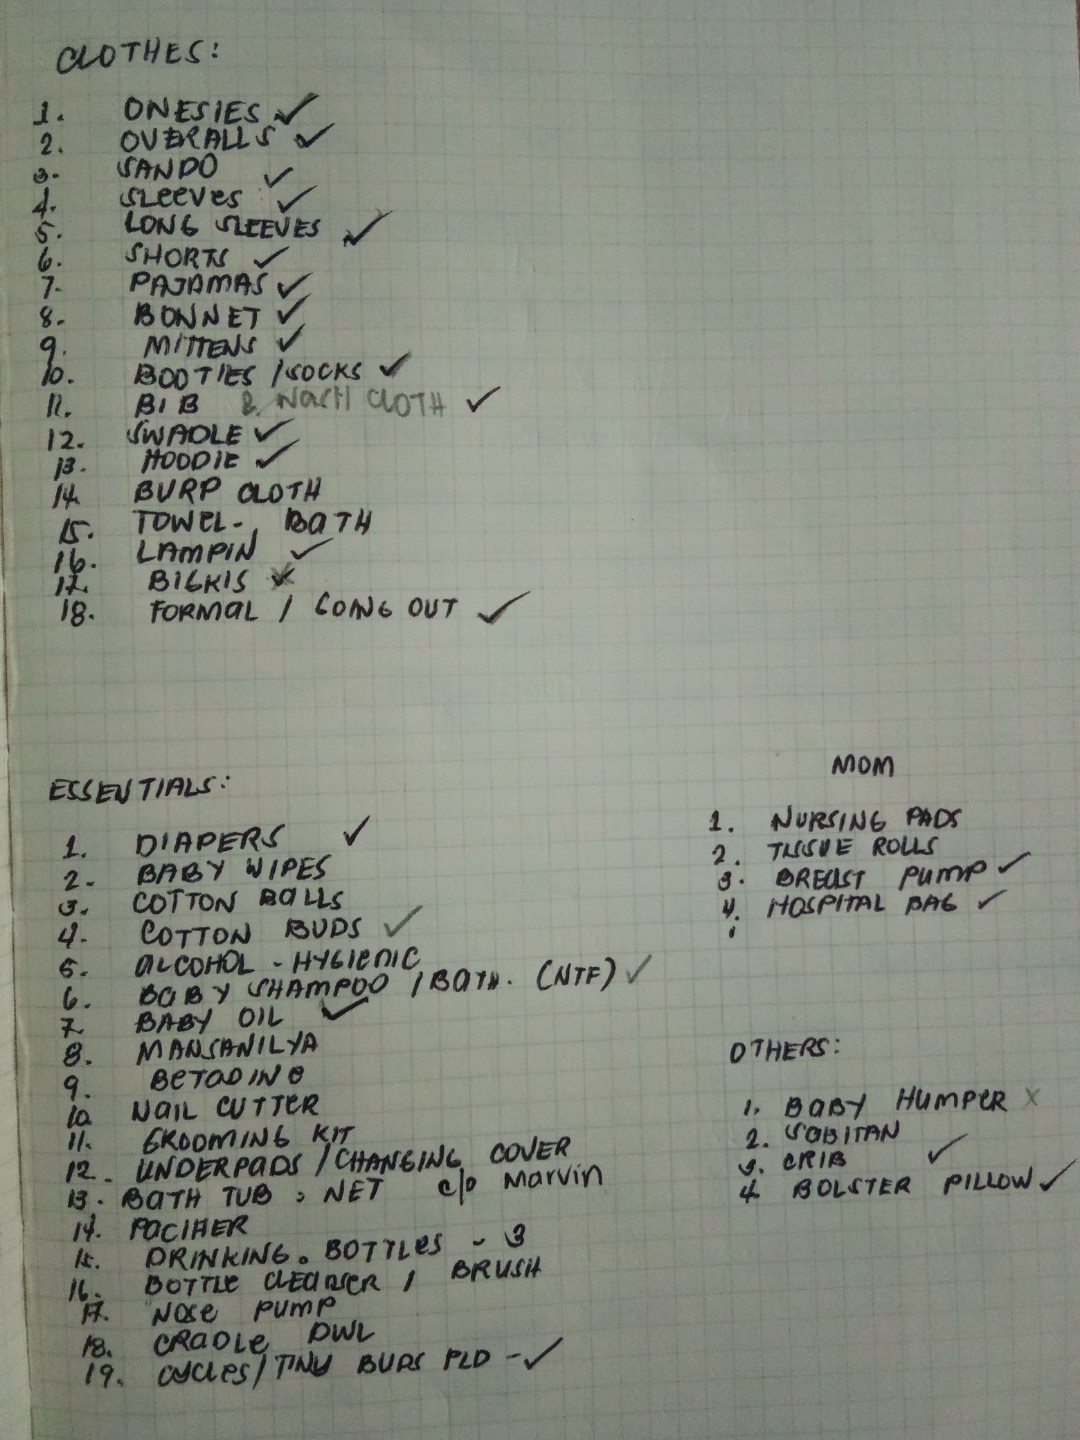 CLOTHES:
1. ONESIES ✓
2. OVERALLS ✓
3. SANDO ✓
4. SLEEVES ✓
5. LONG SLEEVES ✓
6. SHORTS ✓
7. PAJAMAS ✓
8. BONNET ✓
9. MITTENS ✓
10. BOOTIES / SOCKS ✓
11. BIB & WASH CLOTH ✓
12. SWADLE ✓
13. HOODIE ✓
14. BURP CLOTH
15. TOWEL - BATH
16. LAMPIN ✓
17. BIGKIS X
18. FORMAL / GOING OUT ✓
ESSENTIALS:
1. DIAPERS ✓
2. BABY WIPES
3. COTTON BALLS
4. COTTON BUDS ✓
5. ALCOHOL - HYGIENIC
6. BABY SHAMPOO / BATH. (NTF) ✓
7. BABY OIL ✓
8. MANSANILYA
9. BETADINE
10. NAIL CUTTER
11. GROOMING KIT
12. UNDERPADS / CHANGING COVER
13. BATH TUB, NET c/o Marvin
14. PACIFIER
15. DRINKING BOTTLES - 3
16. BOTTLE CLEANSER / BRUSH
17. NOSE PUMP
18. CRADLE DWL
19. CYCLES / TINY BUDS PLD - ✓
MOM
1. NURSING PADS
2. TISSUE ROLLS
3. BREAST PUMP ✓
4. HOSPITAL BAG ✓
OTHERS:
1. BABY HUMPER X
2. SABITAN
3. CRIB ✓
4. BOLSTER PILLOW ✓